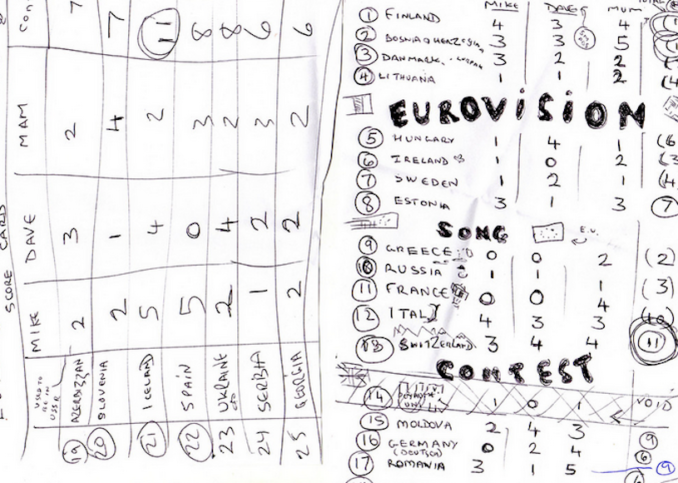 SCORE CARDS
MIKE DAVE MAM Con
USED TO BE IN USSR
19 AZERBIZZAN 2 3 2 7
20 SLOVENIA 2 1 4 7
21 ICELAND 5 4 2 11
22 SPAIN 5 0 3 8
23 UKRAINE 2 4 2 8
24 SERBIA 1 2 3 6
25 GEORGIA 2 2 2 6
MIKE DAVE MUM
1 FINLAND 4 3 4
2 BOSNIA & HERZ 3 3 5
3 DANMARK 3 2 2
4 LITHUANIA 1 1 2 (4
EUROVISION
5 HUNGARY 1 4 1 (6
6 IRELAND 1 0 2 (3
7 SWEDEN 1 2 1 (4
8 ESTONIA 3 1 3 7
SONG E.U.
9 GREECE 0 0 2 (2)
10 RUSSIA 1 1 1 (3)
11 FRANCE 0 0 4
12 ITALY 4 3 3 (10)
13 SWITZERLAND 3 4 4 11
CONTEST
14 1 0 1 VOID
15 MOLDOVA 2 4 3 9
16 GERMANY 0 2 4 6
(DEUTSCH)
17 ROMANIA 3 1 5 9